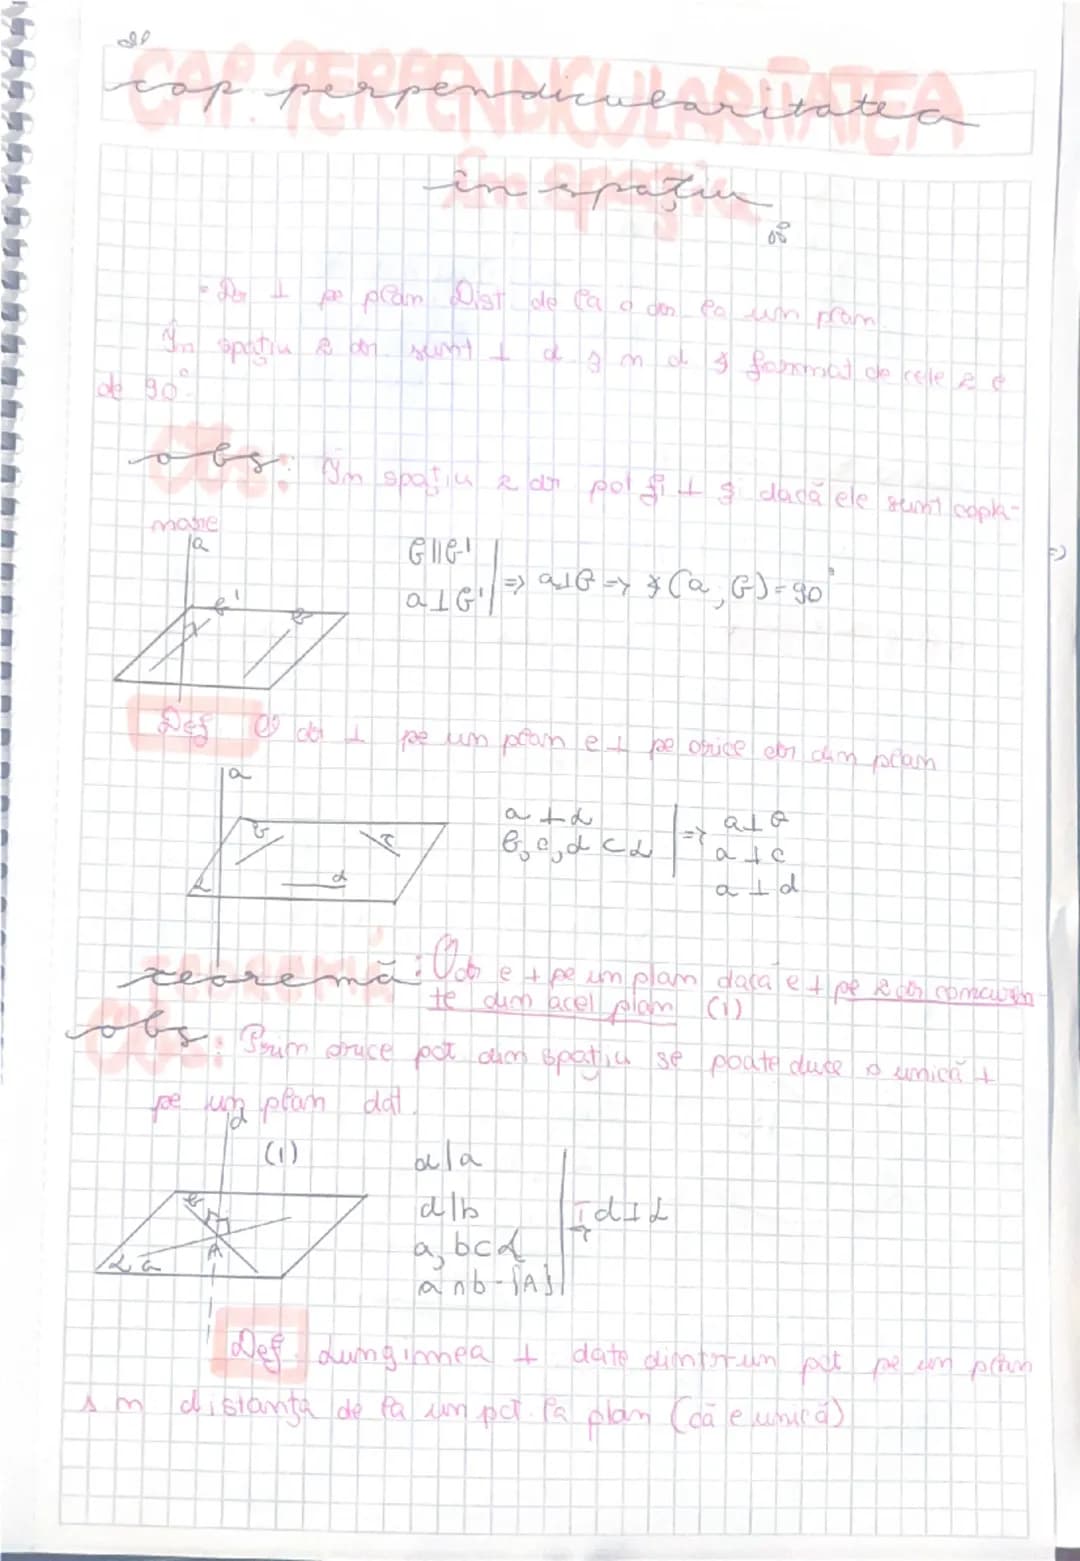 CAP. PERPENDICULARITATEA
cap perpendicularitatea
în spațiu
• Dr ⊥ pe plan Dist de la o dr la un plan
În spațiu 2 dr sunt ⊥ d ∢ format de cele 2 e
de 90°
obs: În spațiu 2 dr pot fi ⊥ și dacă ele sunt copla-
nare
a
b' b
b||b'
a⊥b' | => a⊥b => ∢(a, b) = 90°
Def O dr ⊥ pe un plan e ⊥ pe orice dr din plan
a
b c
d
α
a ⊥ α
b, c, d ⊂ α | => a⊥b
a ⊥ c
a ⊥ d
teoremă: O dr e ⊥ pe un plan dacă e ⊥ pe 2 dr concuren-
te din acel plan (1)
obs: Prin orice pct din spațiu se poate duce o unică ⊥
pe un plan dat.
d
(1)
b
A
α a
d⊥a
d⊥b
a, b⊂α
a∩b = {A} | => d⊥α
Def Lungimea ⊥ date dintr-un pct pe un plan
s n distanța de la un pct la plan (că e unică)